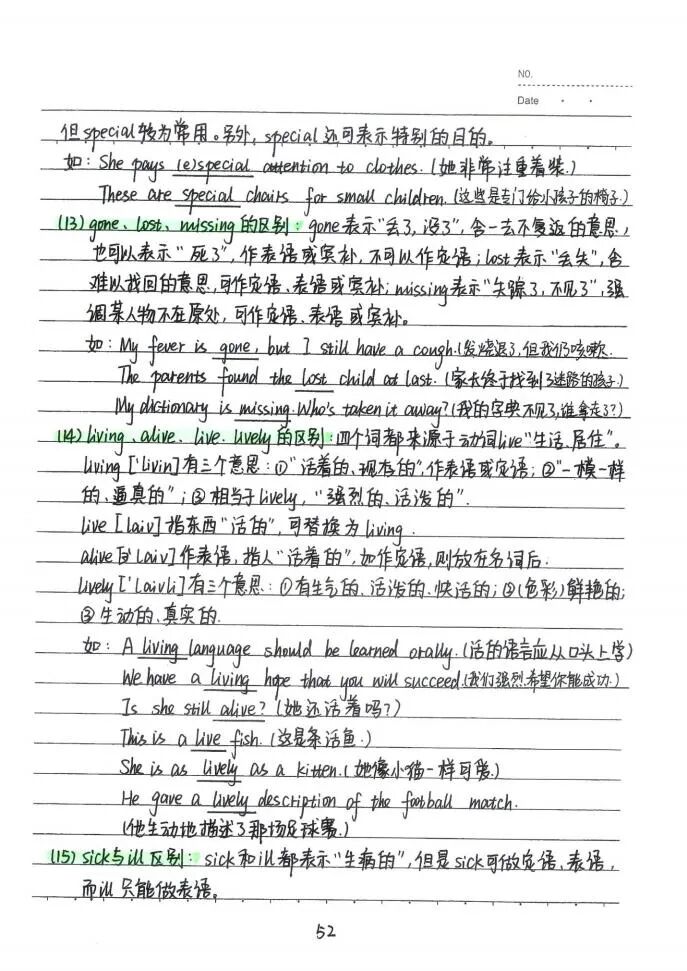 NO.
Date
但special较为常用。另外，special还可表示特别的目的。
如：She pays (e)special attention to clothes.(她非常注重着装.)
These are special chairs for small children.(这些是专门给小孩子的椅子.)
(13) gone、lost、missing的区别：gone表示“丢了,没了”，含一去不复返的意思，
也可以表示“死了”，作表语或宾补，不可以作定语；lost表示“丢失”，含
难以找回的意思,可作定语、表语或宾补；missing表示“失踪了,不见了”,强
调某人物不在原处，可作定语、表语或宾补。
如：My fever is gone, but I still have a cough.(发烧退了,但我仍咳嗽.
The parents found the lost child at last.(家长终于找到了迷路的孩子.)
My dictionary is missing. Who's taken it away?(我的字典不见了,谁拿走了?)
(14) living、alive、live、lively的区别：四个词都来源于动词live“生活、居住”。
living ['livin]有三个意思：①“活着的、现存的”,作表语或定语；②“一模一样
的、逼真的”；③相当于lively，“强烈的、活泼的”.
live [laiv]指东西“活的”，可替换为living.
alive[ə'laiv]作表语，指人“活着的”，如作定语，则放在名词后.
lively['laivli]有三个意思：①有生气的、活泼的、快活的；②(色彩)鲜艳的；
③生动的、真实的.
如：A living language should be learned orally.(活的语言应从口头上学)
We have a living hope that you will succeed.(我们强烈希望你能成功.)
Is she still alive?(她还活着吗?)
This is a live fish.(这是条活鱼.)
She is as lively as a kitten.(她像小猫一样可爱.)
He gave a lively description of the football match.
(他生动地描述了那场足球赛.)
(15) sick与ill区别：sick和ill都表示“生病的”，但是sick可做定语、表语，
而ill只能做表语。
52